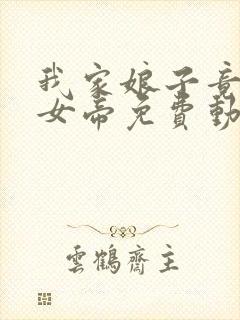 我家娘子竟
女帝免費動
雲鶴齋主